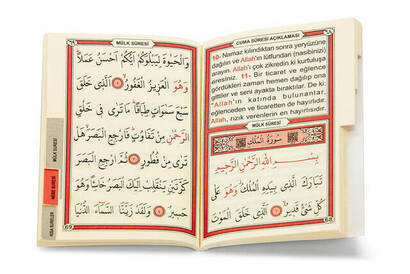 CUMA SÛRESİ AÇIKLAMASI
٦٨
10- Namaz kılındıktan sonra yeryüzüne
dağılın ve Allah'ın lütfundan (nasibinizi)
arayın. Allah'ı çok zikredin ki kurtuluşa
eresiniz. 11- Bir ticaret ve eğlence
gördükleri zaman hemen dağılıp ona
gittiler ve seni ayakta bıraktılar. De ki:
"Allah'ın katında bulunanlar,
eğlenceden ve ticaretten de hayırlıdır.
Allah, rızık verenlerin en hayırlısıdır.
MÜLK SÛRESİ
سُورَةُ الْمُلْكِ
بِسْمِ اللّٰهِ الرَّحْمٰنِ الرَّحِيمِ
تَبَارَكَ الَّذِي بِيَدِهِ الْمُلْكُ وَهُوَ عَلٰى
كُلِّ شَيْءٍ قَدِيرٌ ١ اَلَّذِي خَلَقَ الْمَوْتَ
68
MÜLK SÛRESİ
٦٩
وَالْحَيٰوةَ لِيَبْلُوَكُمْ اَيُّكُمْ اَحْسَنُ عَمَلًا
وَهُوَ الْعَزِيزُ الْغَفُورُ ٢ اَلَّذِي خَلَقَ
سَبْعَ سَمٰوَاتٍ طِبَاقًا مَا تَرٰى فِي خَلْقِ
الرَّحْمٰنِ مِنْ تَفَاوُتٍ فَارْجِعِ الْبَصَرَ هَلْ
تَرٰى مِنْ فُطُورٍ ٣ ثُمَّ ارْجِعِ الْبَصَرَ
كَرَّتَيْنِ يَنْقَلِبْ اِلَيْكَ الْبَصَرُ خَاسِئًا وَهُوَ
حَسِيرٌ ٤ وَلَقَدْ زَيَّنَّا السَّمَاءَ الدُّنْيَا
69
MÜLK SURESİ
NEBE SURESİ
KISA SURELER